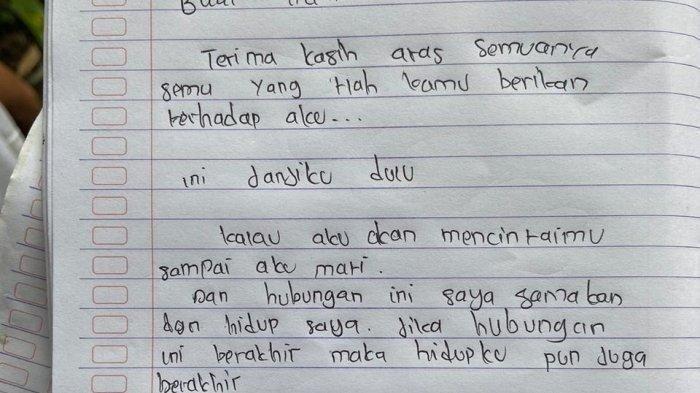 Terima kasih atas semuanya
semu yang tlah kamu berikan
terhadap aku...
ini janjiku dulu
kalau aku akan mencintaimu
sampai aku mati.
Dan hubungan ini saya samakan
dgn hidup saya. Jika hubungan
ini berakhir maka hidupku pun Juga
berakhir